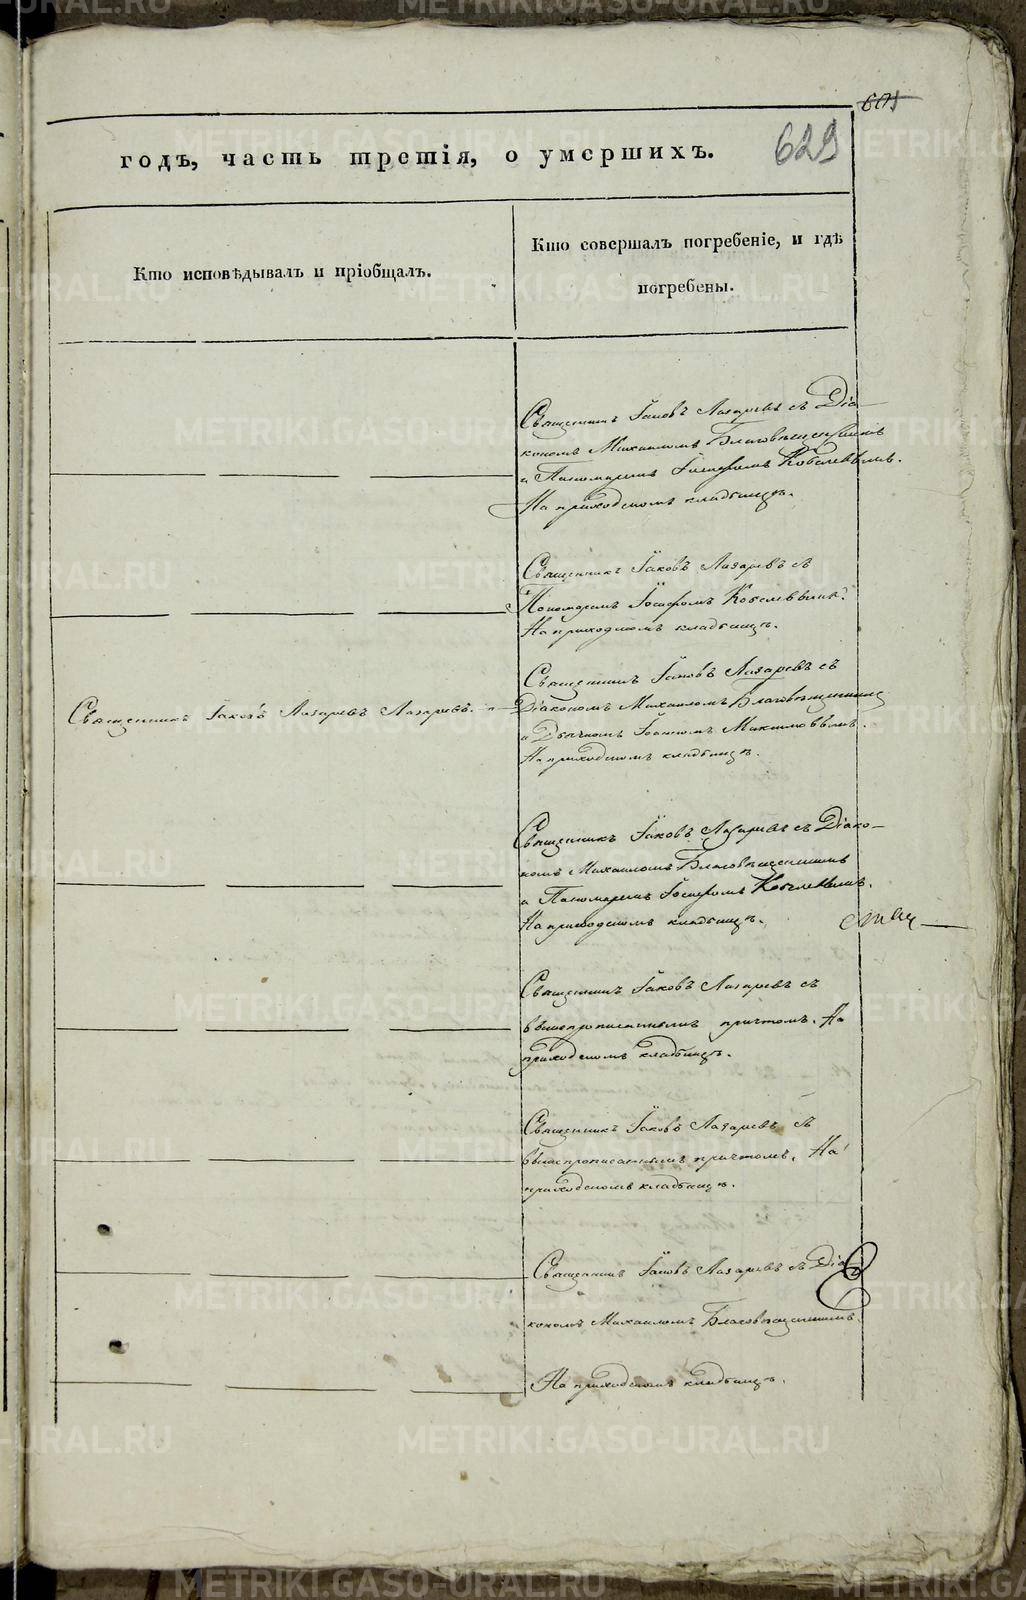 629
годъ, часть третія, о умершихъ.
Кто исповѣдывалъ и пріобщалъ.
Кто совершалъ погребеніе, и гдѣ
погребены.
Священникъ Іаковъ Лазаревъ съ Діа-
кономъ Михаиломъ Благовѣщенскимъ
и Пономаремъ Іосифомъ Кобелевымъ.
На приходскомъ кладбищѣ.
Священникъ Іаковъ Лазаревъ съ
Пономаремъ Іосифомъ Кобелевымъ.
На приходскомъ кладбищѣ.
Священникъ Іаковъ Лазаревъ Лазаревъ.
Священникъ Іаковъ Лазаревъ съ
Діакономъ Михаиломъ Благовѣщенскимъ
и Дьячкомъ Іоанномъ Максимовымъ.
На приходскомъ кладбищѣ.
Священникъ Іаковъ Лазаревъ съ Діако-
номъ Михаиломъ Благовѣщенскимъ
и Пономаремъ Іосифомъ Кобелевымъ.
На приходскомъ кладбищѣ.
Священникъ Іаковъ Лазаревъ съ
вышепрописаннымъ причтомъ. На
приходскомъ кладбищѣ.
Священникъ Іаковъ Лазаревъ съ
вышепрописаннымъ причтомъ. На
приходскомъ кладбищѣ.
Священникъ Іаковъ Лазаревъ съ Діа
кономъ Михаиломъ Благовѣщенскимъ.
На приходскомъ кладбищѣ.
METRIKI.GASO-URAL.RU